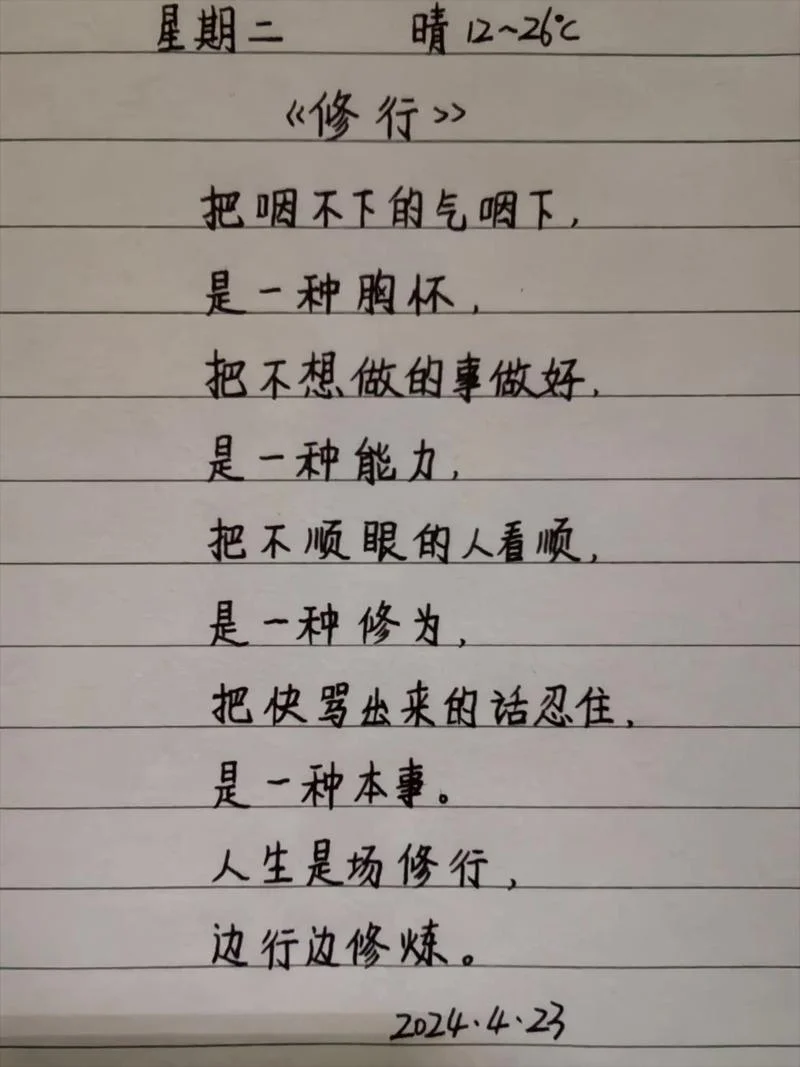 星期二 晴 12~26℃
《修行》
把咽不下的气咽下,
是一种胸怀,
把不想做的事做好,
是一种能力,
把不顺眼的人看顺,
是一种修为,
把快骂出来的话忍住,
是一种本事。
人生是场修行,
边行边修炼。
2024.4.23